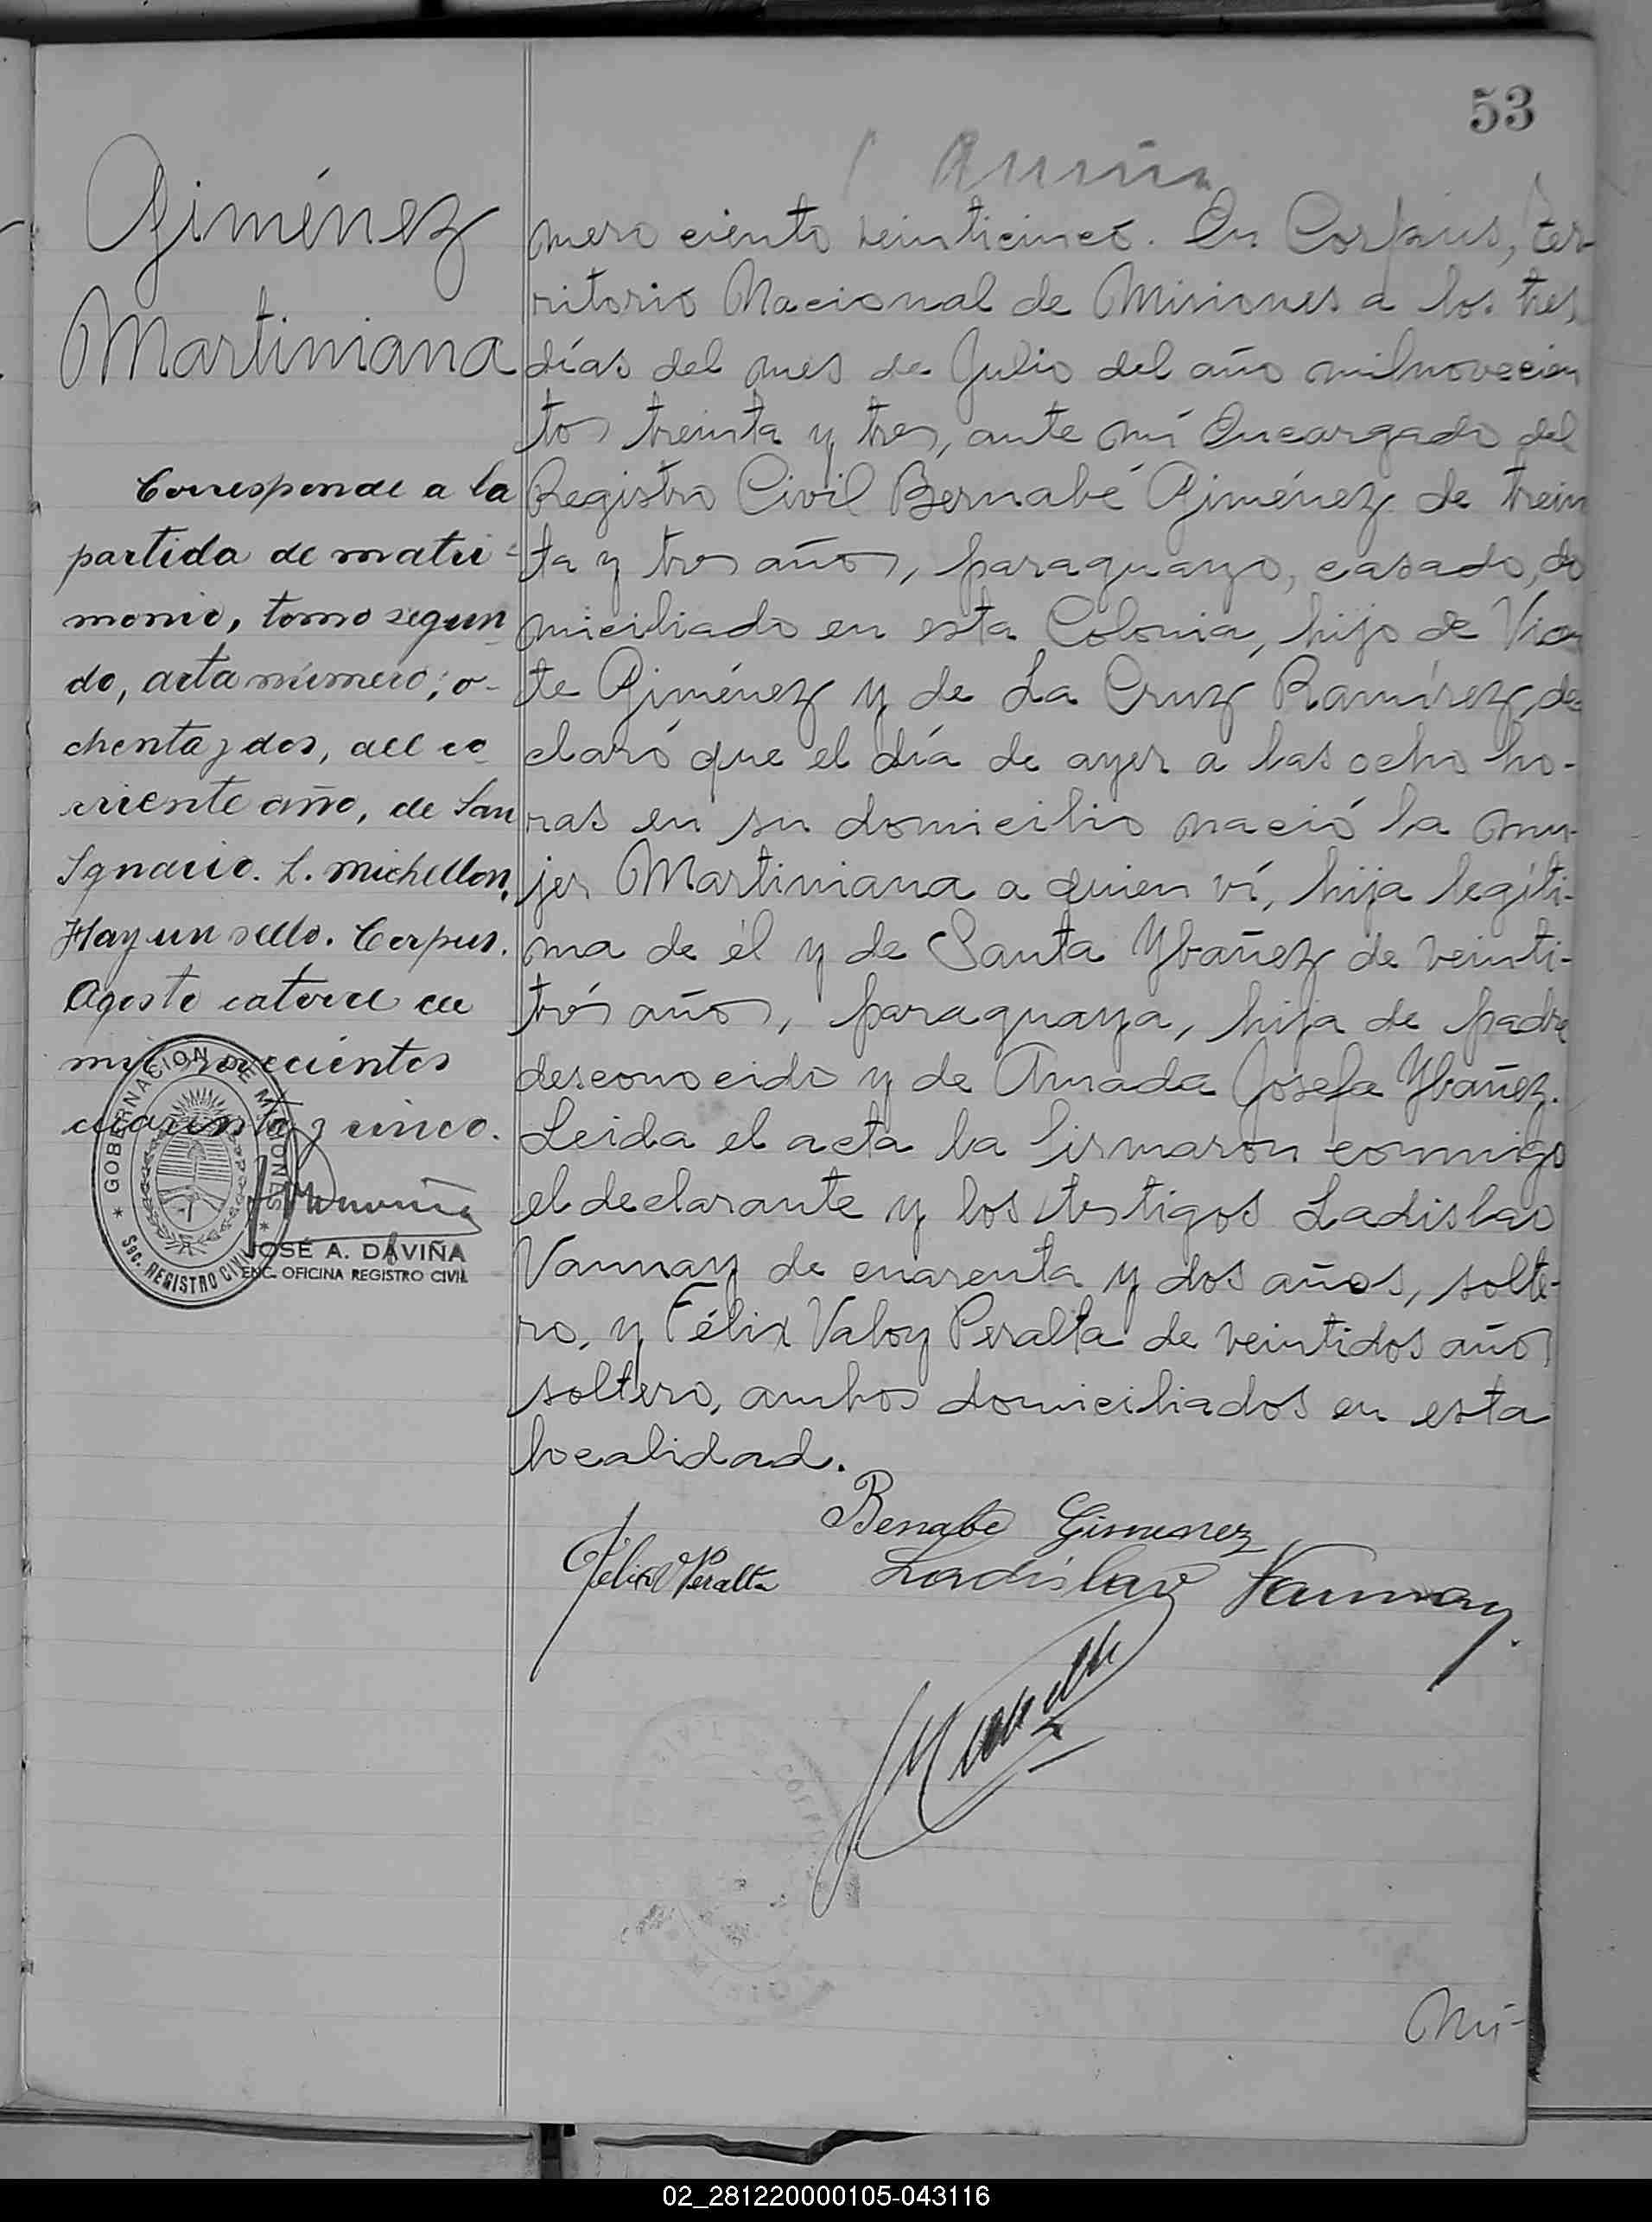 53
Giménez
Martiniana
mero ciento veinticinco. En Corpus, ter-
ritorio Nacional de Misiones a los tres
días del mes de Julio del año milnovecien
tos treinta y tres, ante mí Encargado del
Registro Civil Bernabé Giménez de trein
ta y tres años, paraguayo, casado, do
miciliado en esta Colonia, hijo de Vicen
te Giménez y de La Cruz Ramírez, de
claró que el día de ayer a las ocho ho-
ras en su domicilio nació la mu-
jer Martiniana a quien ví, hija legíti-
ma de él y de Santa Ybañez de veinti-
trés años, paraguaya, hija de padre
desconocido y de Amada Josefa Ybañez.
Leida el acta la firmaron conmigo
el declarante y los testigos Ladislao
Vannay de cuarenta y dos años, solte-
ro, y Félix Valoy Peralta de veintidos años
soltero, ambos domiciliados en esta
localidad.
Benabe Gimenez
Felix V Peralta
Ladislao Vannay.
Nú-
Corresponde a la
partida de matri-
monio, tomo segun
do, acta número; o-
chenta y dos, del co
rriente año, de San
Ignacio. L. Michellon.
Hay un sello. Corpus.
Agosto catorce de
mil novecientos
cuarenta y cinco.
GOBERNACION DE MISIONES
Sec. REGISTRO CIVIL
JOSÉ A. DAVIÑA
ENC. OFICINA REGISTRO CIVIL
02_281220000105-043116